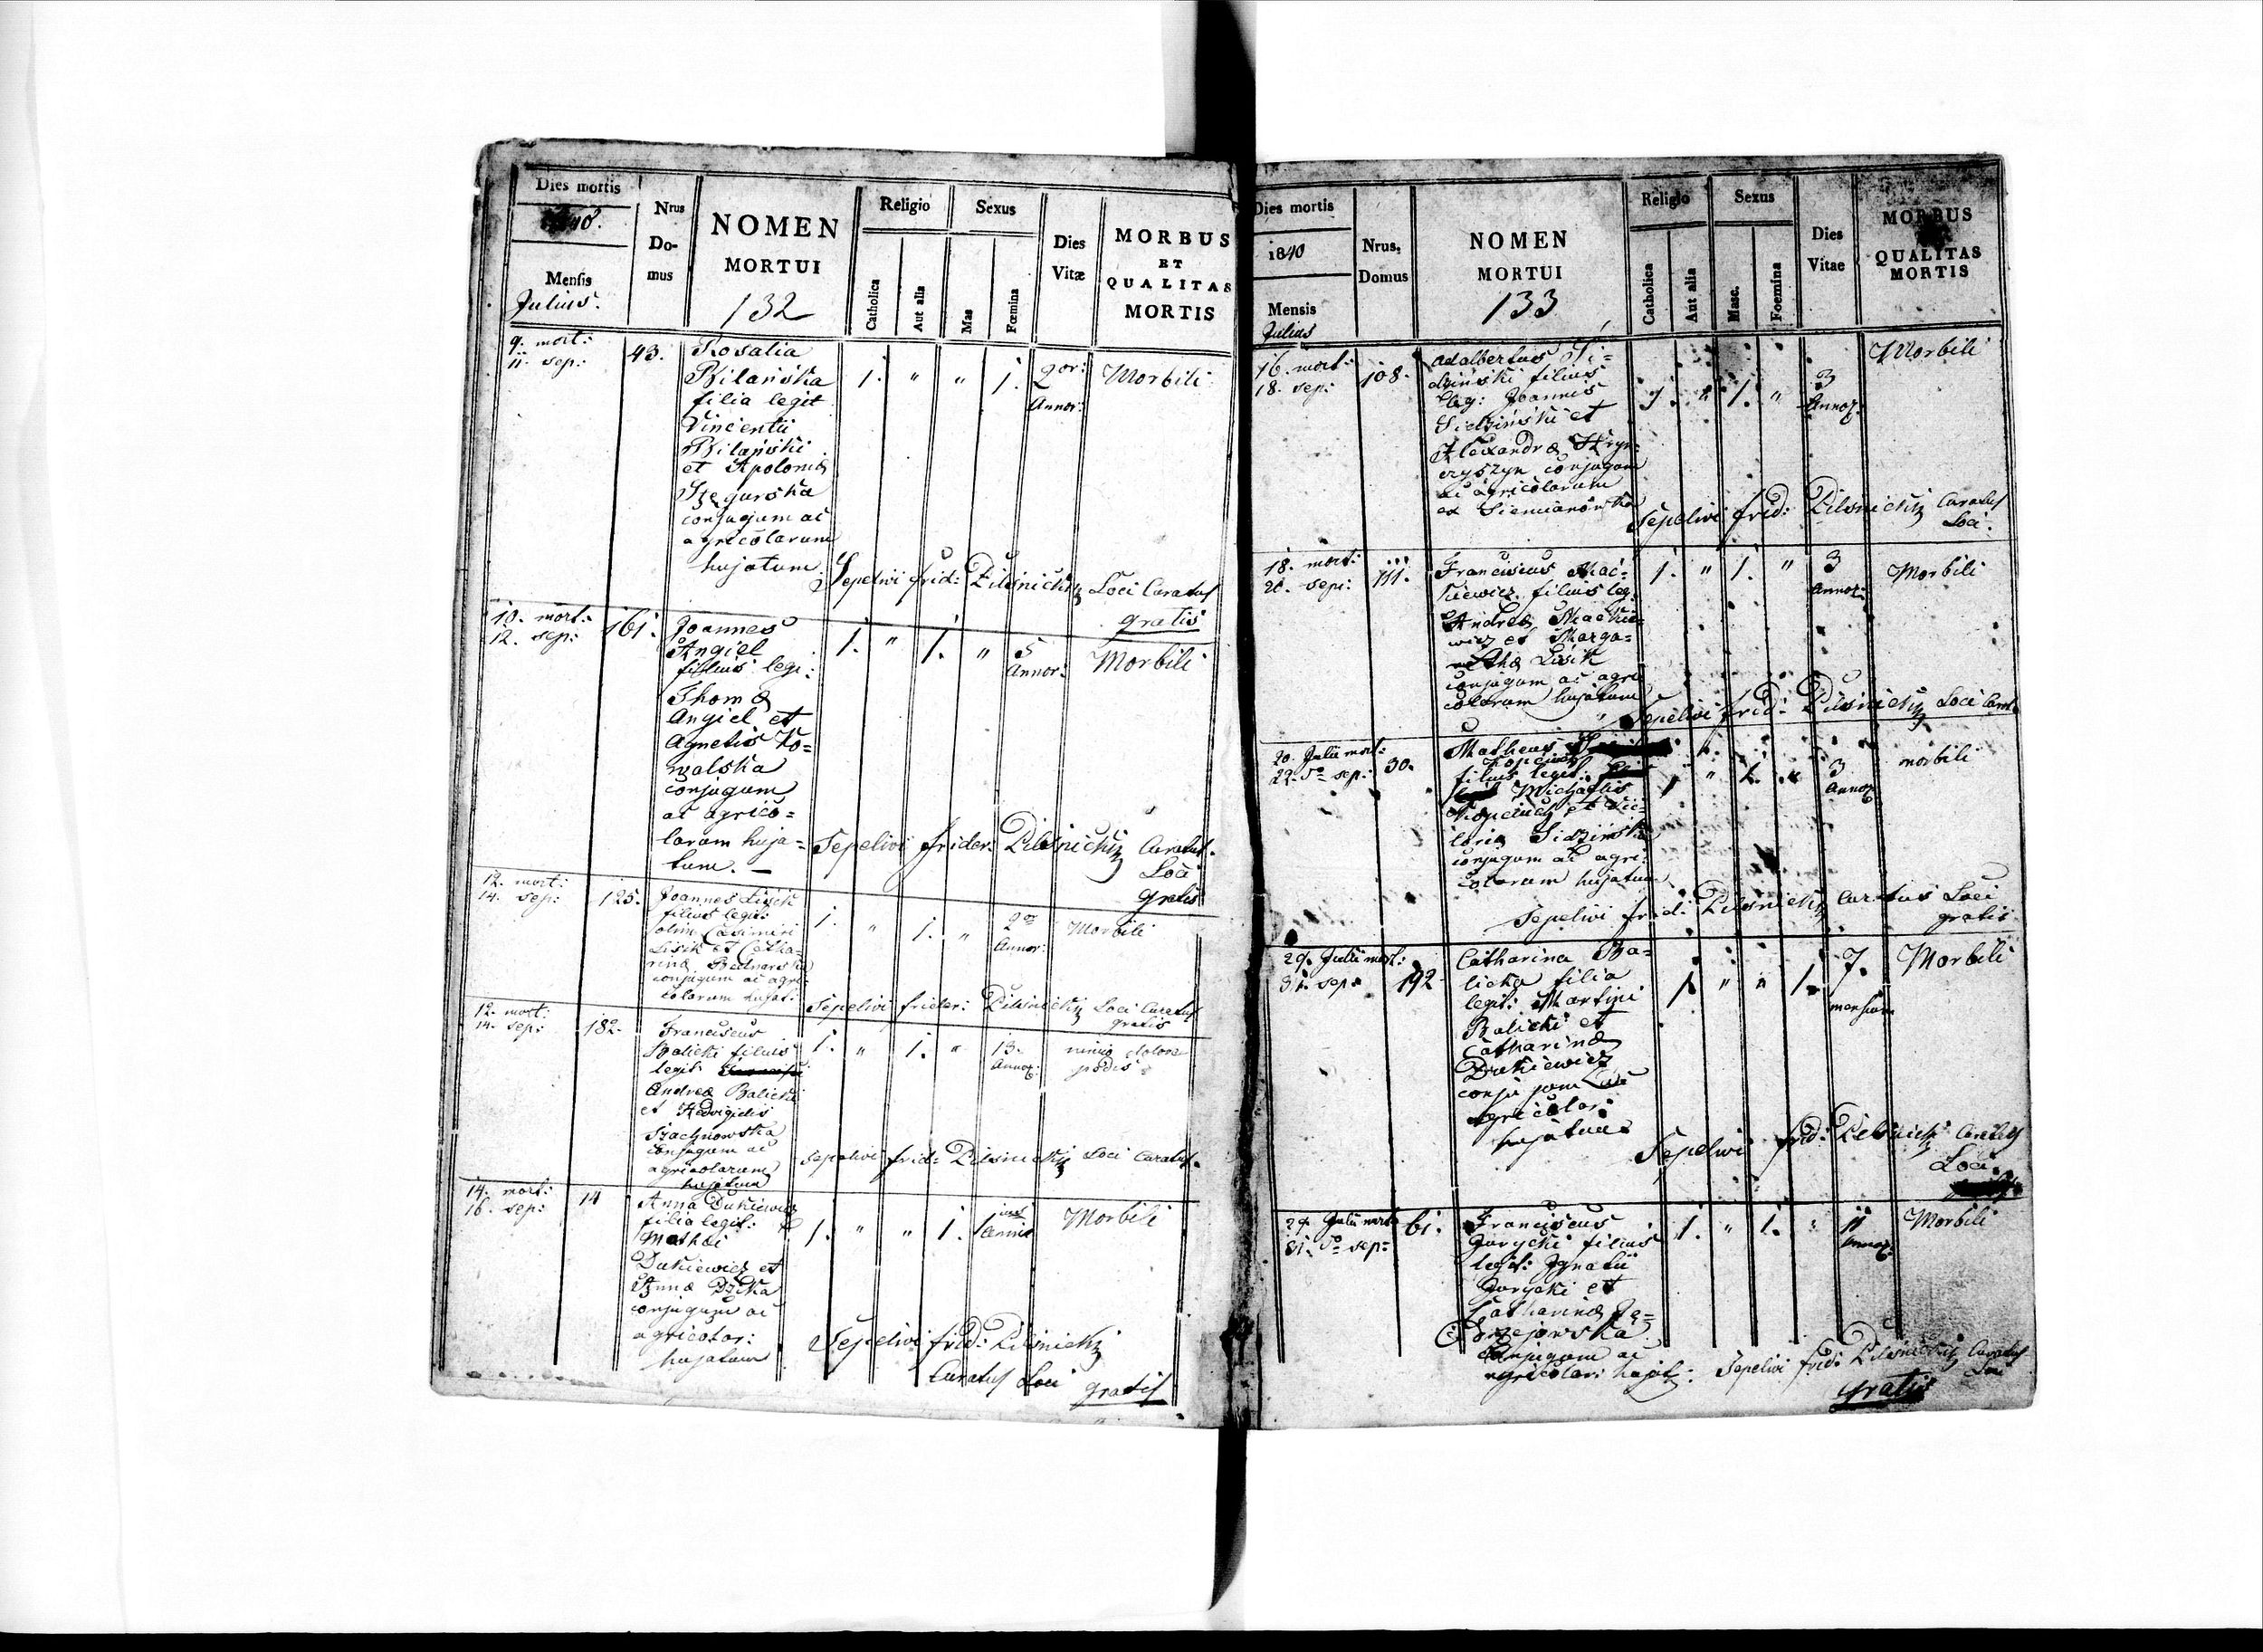 Dies mortis
Mensis
Julius.
Nrus
Do-
mus
NOMEN
MORTUI
132
Religio
Catholica
Aut alia
Sexus
Mas
Fœmina
Dies
Vitæ
MORBUS
ET
QUALITAS
MORTIS
9. mort:
11. sep:
43.
Rosalia
Bilańska
filia legit
Vincentii
Bilański
et Apolonia
conjugum ac
agricolarum
hujatum.
1. " " 1.
2or:
Annor:
Morbili
Sepelivi frid: Pilsnicki Loci Curatus
gratis
10. mort:
12. sep:
161.
Joannes
Angiel
filius legi:
Thoma
Angiel et
Agnetis Ko=
walska
conjugum
ac agrico=
larum huja=
tum. —
1. " 1. "
5
Annor:
Morbili
Sepelivi frider: Pilsnicki Curatus
Loci
gratis
12. mort:
14. sep:
125.
Joannes Lisik
filius legit:
olim Casimiri
Lisik et Catha=
rina Bednarska
conjugum ac agri=
colarum hujat:
1. " 1. "
2or
Annor:
Morbili
Sepelivi frider: Pilsnicki Loci Curatus
gratis
12. mort:
14. sep:
182.
Franciscus
Balicki filius
legit:
Andrea Balicki
et Hedvigidis
Szachnowska
conjugum ac
agricolarum
hujatum
1. " 1. "
13.
Annor:
nimio dolore
pedis
Sepelivi frid: Pilsnicki Loci Curatus.
14. mort:
16. sep:
14
Anna Dukiewicz
filia legit:
Mathæi
Dukiewicz et
Anna
conjugum ac
agricolar:
hujatum
1. " " 1.
1 ius
Anni
Morbili
Sepelivi frid: Pilsnicki
Curatus Loci gratis
Dies mortis
1840
Mensis
Julius
Nrus,
Domus
NOMEN
MORTUI
133
Religio
Catholica
Aut alia
Sexus
Masc.
Foemina
Dies
Vitae
MORBUS
ET
QUALITAS
MORTIS
16. mort:
18. sep:
108.
Adalbertus Si=
dziński filius
leg: Joannis
Sidziński et
Alexandra
conjugum
ac agricolarum
ex Siemianówka
1. " 1. "
3
Annor.
Morbili
Sepelivi frid: Pilsnicki Curatus
Loci.
18. mort:
20. sep:
111.
Franciscus Mac=
kiewicz filius leg.
Andrea Mackie=
wicz et Marga=
retha Lisik
conjugum ac agri
colarum hujatum
1. " 1. "
3
Annor:
Morbili
Sepelivi frid: Pilsnicki Loci Curat.
20. Julii mort:
22. do sep:
30.
Matheus
Kopciuch
filius legit:
Michaelis
Kopciuch et Vic=
toria Sidzińska
conjugum ac agri=
colarum hujatum
1 " 1. "
3
Annor
morbili
Sepelivi frid: Pilsnicki Curatus Loci
gratis
29. Julii mort:
31. sep:
192
Catharina Ba=
licka filia
legit: Martini
Balicki et
Catharina
Dukiewicz
conjugum ac
agricolar:
hujatum
1. " " 1.
7.
mensium
Morbili
Sepelivi frid: Pilsnicki Curatus
Loci.
29. Julii mort:
31. do sep:
61.
Franciscus
Gorycki filius
legit: Ignatii
Gorycki et
Catharina Ję=
drzejowska
Conjugum ac
agricolar: hujat:
1. " 1. "
11
Annor:
Morbili
Sepelivi frid: Pilsnicki Curatus
Loci
gratis